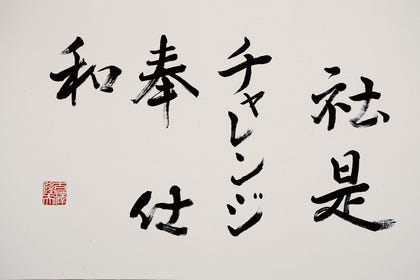 社是
チャレンジ
奉仕
和